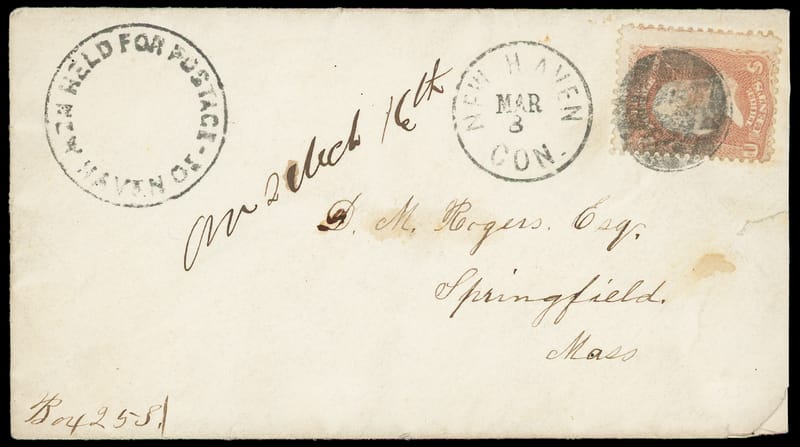 HELD FOR POSTAGE - NEW HAVEN Ct
NEW HAVEN
MAR
3
CON.
March 16th
D. M. Rogers. Esq.
Springfield.
Mass
Box 258.